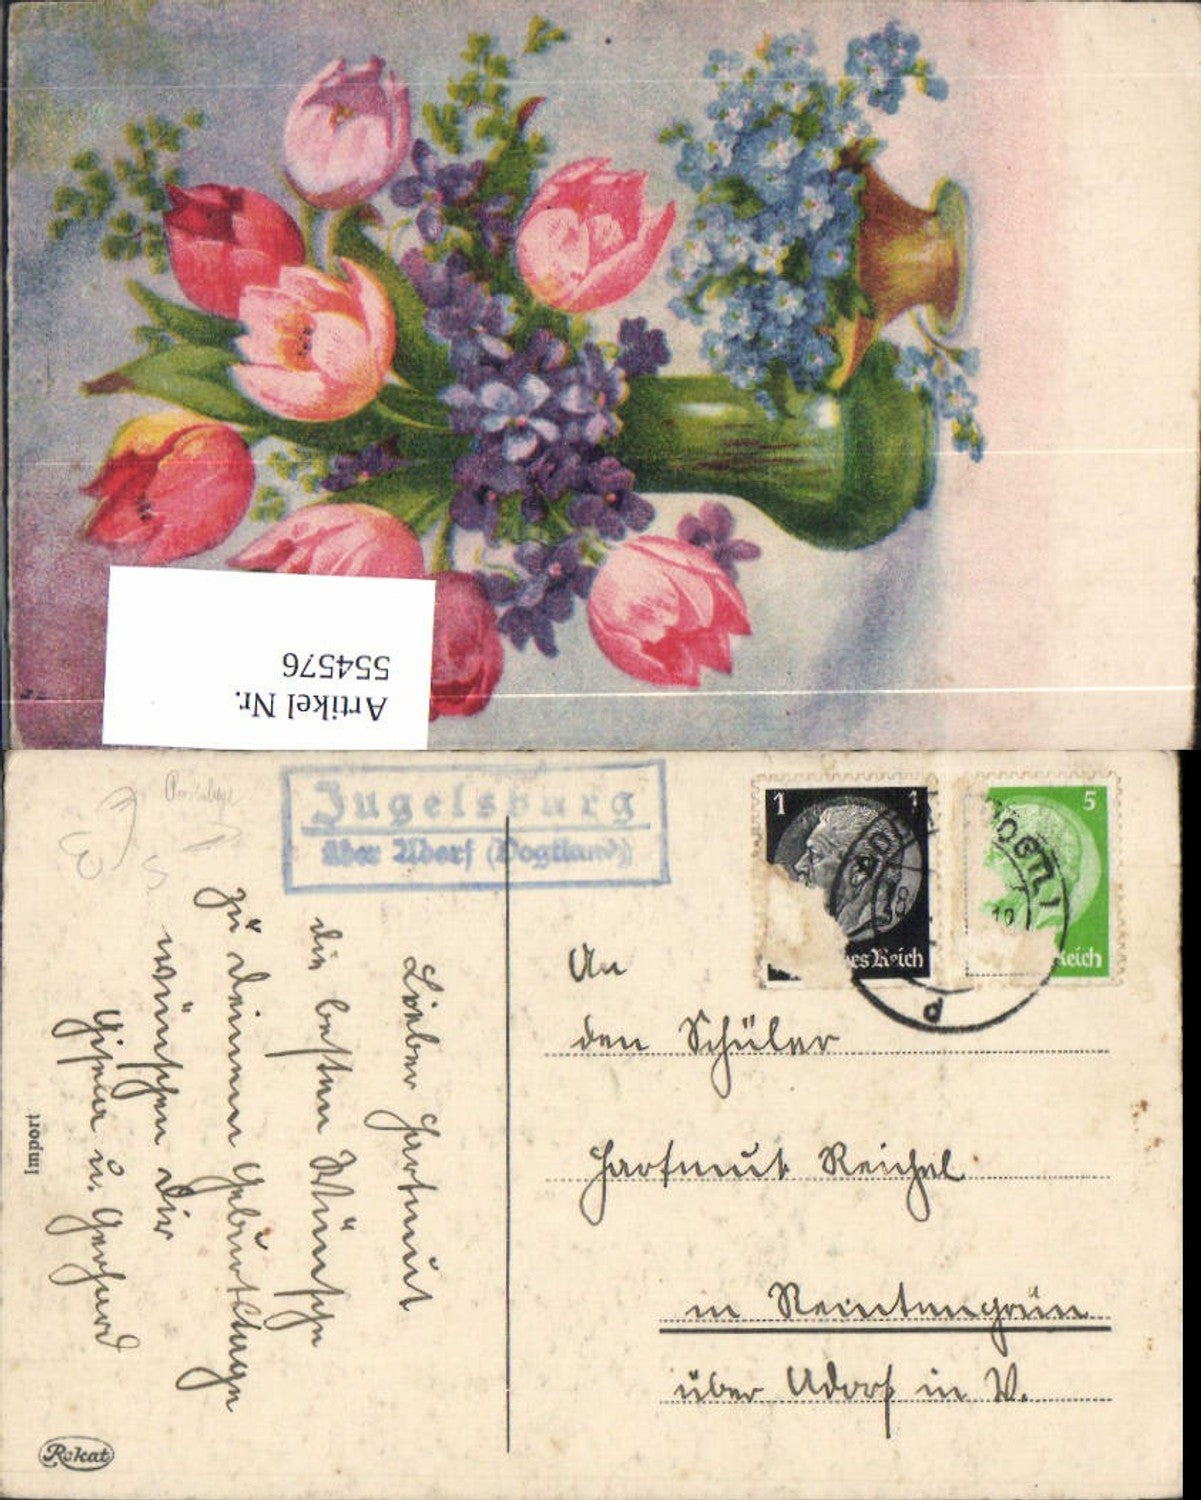 Artikel Nr.
554576
Jugelsburg
über Adorf (Vogtland)
1 1
es Reich
5
eich
VOGTL)
10
Lieber Hartmut
die besten Wünsche
zu deinem Geburtstage
wünschen Dir
Gisela u. Gerhard
An
den Schüler
Hartmut Reichel
in Remtengrün
über Adorf in V.
Import
Rokat